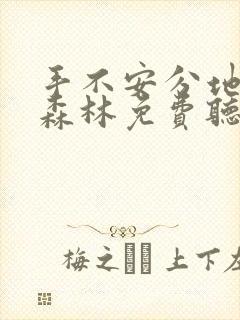 手不安分地
森林免费聽
梅之 上下左